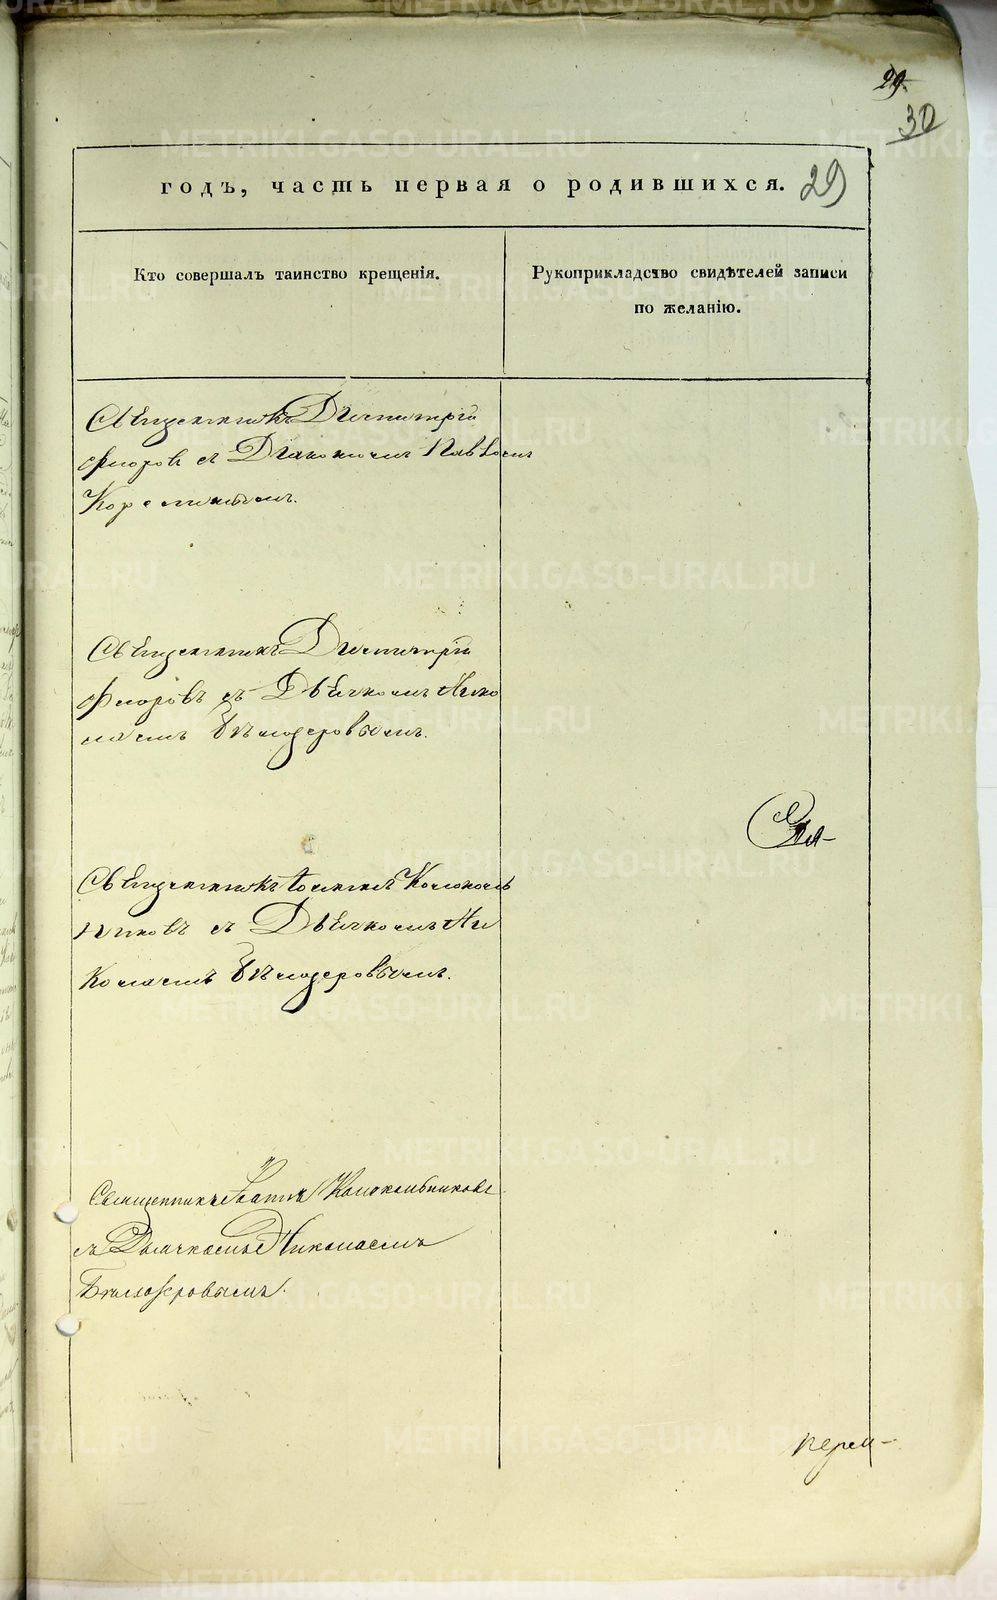 29.
30
годъ, часть первая о родившихся. 29
Кто совершалъ таинство крещенія.
Рукоприкладство свидѣтелей записи
по желанію.
Священникъ Димитрій
Флоровъ съ Діакономъ Павломъ
Священникъ Димитрій
Флоровъ съ Дьячкомъ Нико
лаемъ Бѣлозеровымъ.
Священникъ Іоаннъ Колоколь
никовъ съ Дьячкомъ Ни
колаемъ Бѣлозеровымъ.
Священникъ Іоаннъ Колокольниковъ
съ Дьячкомъ Николаемъ
Бѣлозеровымъ.
METRIKI.GASO-URAL.RU